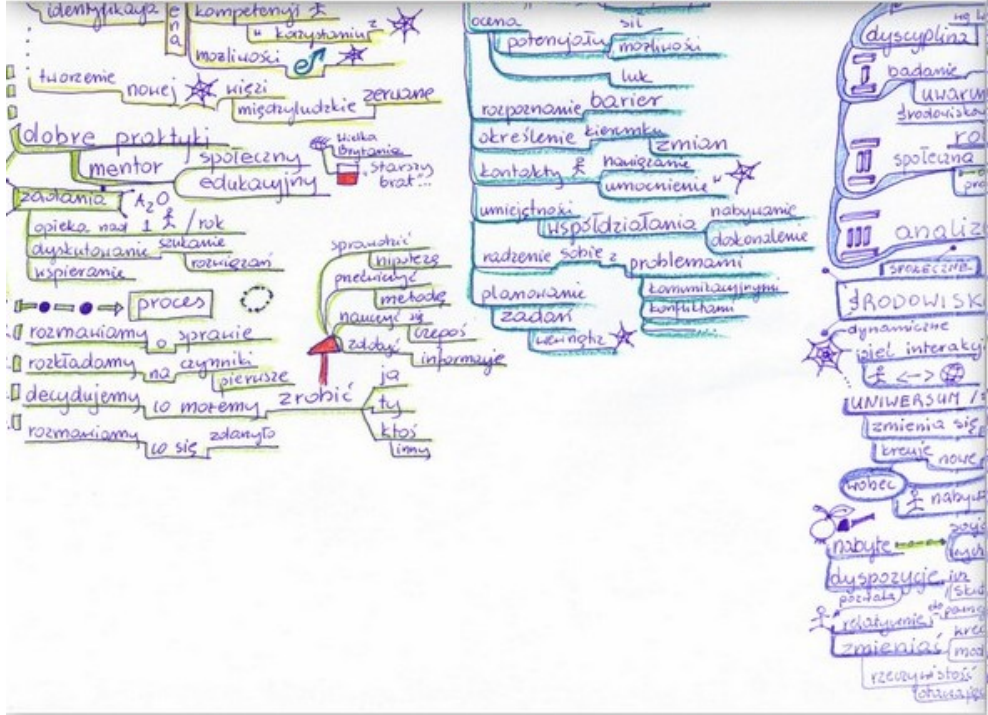 identyfikacja
ena
kompetencji
w korzystaniu z
możliwości
tworzenie nowej więzi
międzyludzkie zerwane
dobre praktyki
mentor
społeczny
edukacyjny
Wielka
Brytania
"Starszy
brat...
zadania
A₂O
opieka nad 1 / rok
dyskutowanie szukanie
rozwiązań
wspieranie
proces
rozmawiamy o sprawie
rozkładamy na czynniki
pierwsze
decydujemy co możemy zrobić
ja
ty
ktoś
inny
rozmawiamy co się zdarzyło
sprawdzić
hipotezę
przećwiczyć
metodę
nauczyć się
czegoś
zdobyć
informacje
ocena
potencjału
sił
możliwości
luk
rozpoznanie barier
określenie kierunku
zmian
kontakty
nawiązanie
umocnienie w
umiejętności
współdziałania
nabywanie
doskonalenie
radzenie sobie z problemami
komunikacyjnymi
konfliktami
planowanie
zadań
wewnątrz
dyscyplina
I badanie
uwarun
środowiskow
II
społeczna
rol
pro
III analiz
SPOŁECZNE
ŚRODOWISK
dynamiczne
pięć interakcj
<->
UNIWERSUM /
zmienia się
kreuje nowe
wobec
nabyw
nabyte
dyspozycje
pozwala
relatywnie
zmieniać
kreo
mod
rzeczywistość
otaczając